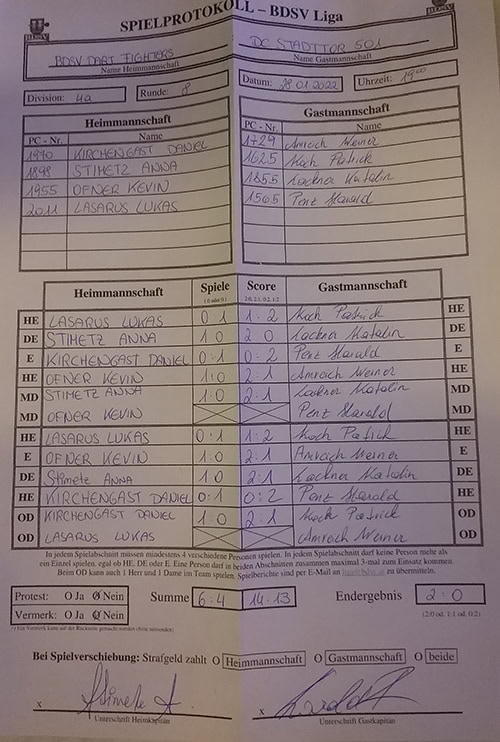 SPIELPROTOKOLL – BDSV Liga
BDSV DART FIGHTERS
Name Heimmannschaft
DC STADTTOR 501
Name Gastmannschaft
Division: 4a
Runde: 8
Datum: 28 01 2022
Uhrzeit: 19⁰⁰
Heimmannschaft
PC - Nr. Name
1970 KIRCHENGAST DANIEL
1898 STIMETZ ANNA
1955 OFNER KEVIN
2011 LASARUS LUKAS
Gastmannschaft
PC - Nr. Name
1729 Amreich Werner
1625 Koch Patrick
1855 Lackner Katalin
1505 Penz Harald
Heimmannschaft Spiele Score Gastmannschaft
(1:0 oder 0:1) (2:0, 2:1, 0:2, 1:2)
HE LASARUS LUKAS 0 1 1 : 2 Koch Patrick HE
DE STIMETZ ANNA 1 0 2 0 Lackner Katalin DE
E KIRCHENGAST DANIEL 0:1 0:2 Penz Harald E
HE OFNER KEVIN 1:0 2:1 Amreich Werner HE
MD STIMETZ ANNA 1:0 2:1 Lackner Katalin MD
MD OFNER KEVIN Penz Harald MD
HE LASARUS LUKAS 0:1 1:2 Koch Patrick HE
E OFNER KEVIN 1:0 2:1 Amreich Werner E
DE Stimetz ANNA 1:0 2:1 Lackner Katalin DE
HE KIRCHENGAST DANIEL 0:1 0:2 Penz Harald HE
OD KIRCHENGAST DANIEL 1:0 2:1 Koch Patrick OD
OD LASARUS LUKAS Amreich Werner OD
In jedem Spielabschnitt müssen mindestens 4 verschiedene Personen spielen. In jedem Spielabschnitt darf keine Person mehr als
ein Einzel spielen, egal ob HE, DE oder E. Eine Person darf in beiden Abschnitten zusammen maximal 3-mal zum Einsatz kommen.
Beim OD kann auch 1 Herr und 1 Dame im Team spielen. Spielberichte sind per E-Mail an zu übermitteln.
Protest: O Ja O Nein
Vermerk: O Ja O Nein
Summe 6:4 14:13
Endergebnis 2:0
(2:0/ od. 1:1 od. 0:2)
Bei Spielverschiebung: Strafgeld zahlt O Heimmannschaft O Gastmannschaft O beide
x
Unterschrift Heimkapitän
x
Unterschrift Gastkapitän